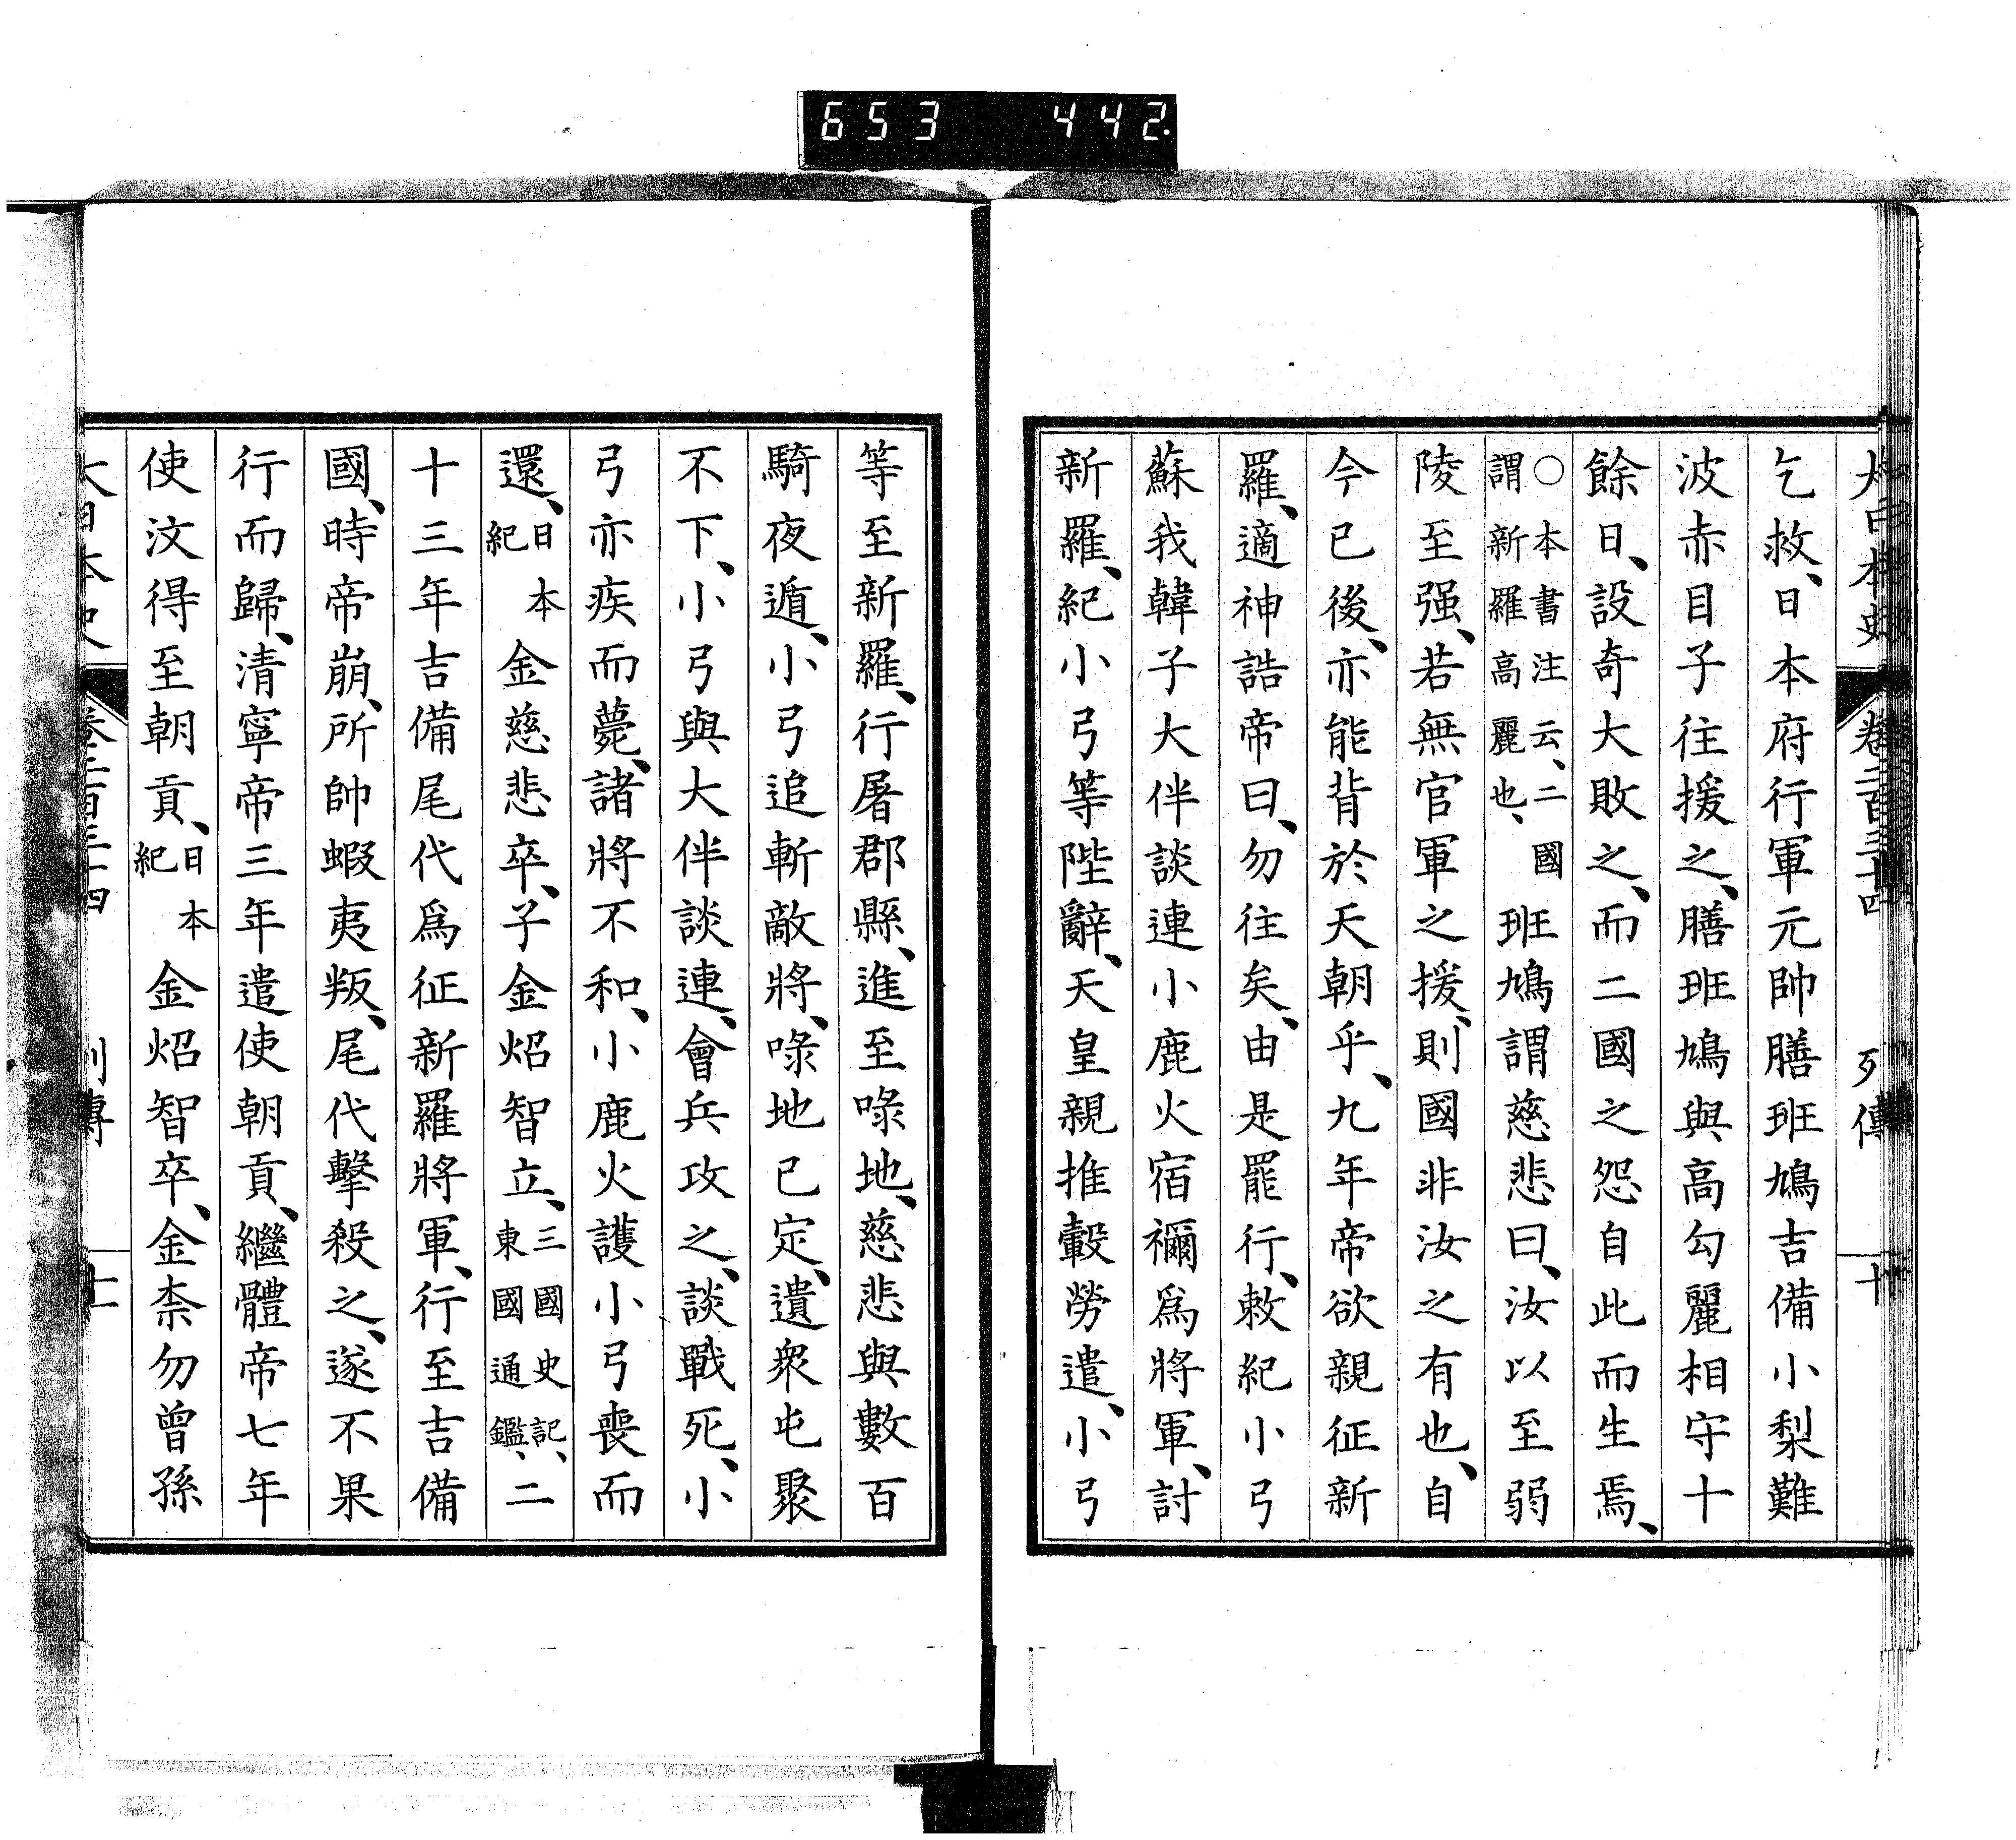 653 442
大日本史 卷二百三十四 列傳 十
乞救、日本府行軍元帥膳班鳩吉備小梨難
波赤目子往援之、膳班鳩與高勾麗相守十
餘日、設奇大敗之、而二國之怨自此而生焉、
○本書注云、二國謂新羅高麗也、班鳩謂慈悲曰、汝以至弱
陵至强、若無官軍之援、則國非汝之有也、自
今已後、亦能背於天朝乎、九年帝欲親征新
羅、適神誥帝曰、勿往矣、由是罷行、敕紀小弓
蘇我韓子大伴談連小鹿火宿禰爲將軍、討
新羅、紀小弓等陛辭、天皇親推轂勞遣、小弓
等至新羅、行屠郡縣、進至喙地、慈悲與數百
騎夜遁、小弓追斬敵將、喙地已定、遺衆屯聚
不下、小弓與大伴談連、會兵攻之、談戰死、小
弓亦疾而薨、諸將不和、小鹿火護小弓喪而
還、日本紀 金慈悲卒、子金炤智立、三國史記、東國通鑑、二
十三年吉備尾代爲征新羅將軍、行至吉備
國、時帝崩、所帥蝦夷叛、尾代擊殺之、遂不果
行而歸、清寧帝三年遣使朝貢、繼體帝七年
使汶得至朝貢、日本紀 金炤智卒、金柰勿曾孫
大日本史 卷二百三十四 列傳 十一